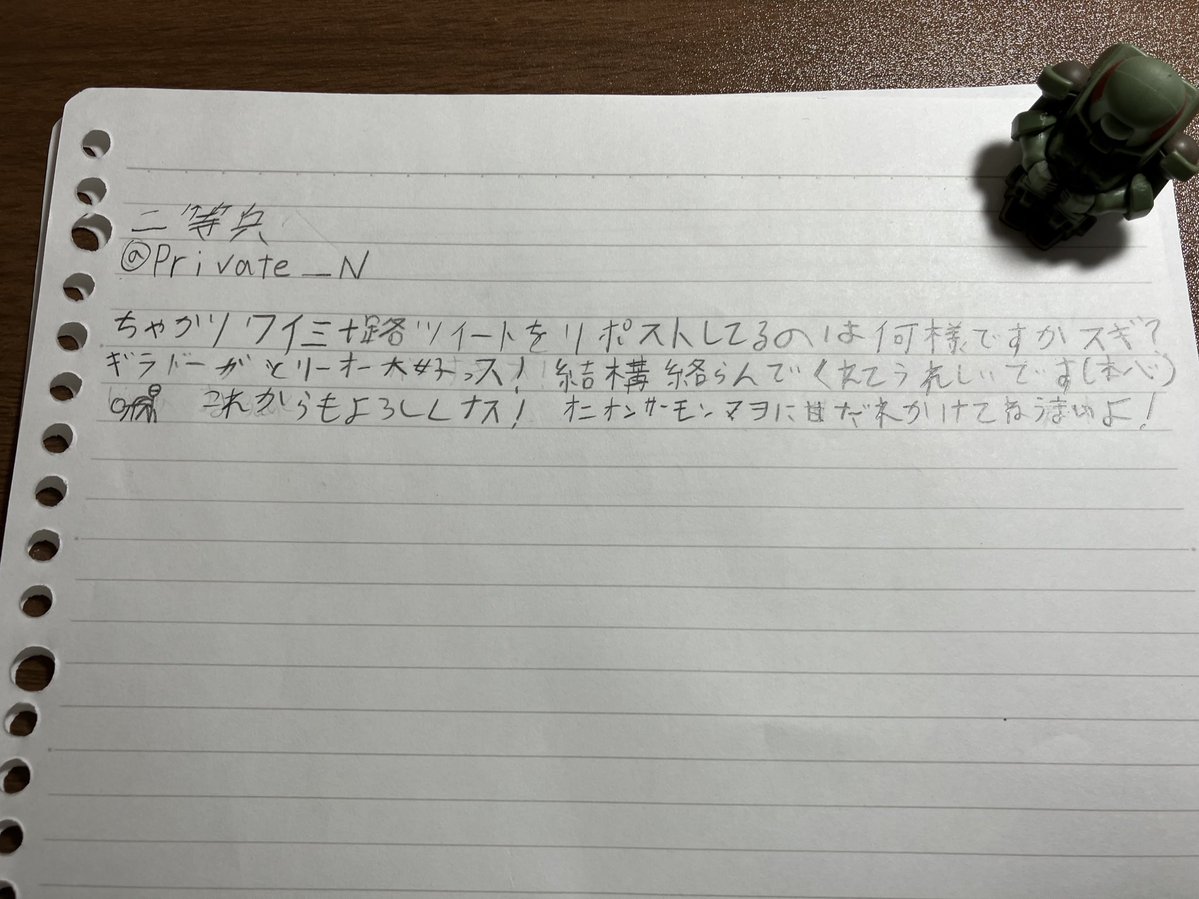 二等兵
@Private_N
ちゃかりワイ三十路ツイートをリポストしてるのは何様ですかスギ?
ギラドーガとリーオー大好っス! 結構絡らんでくれてうれしいです(本心)
これからもよろしくナス! オニオンサーモンマヨに甘だれかけてねうまいよ!